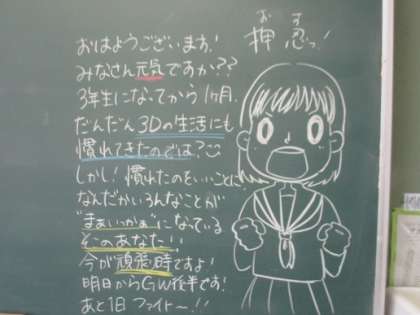 おはようございます!
みなさん元気ですか??
3年生になってから1ヶ月、
だんだん3Dの生活にも
慣れてきたのでは?
しかし!慣れたのをいいことに、
なんだかいろんなことが
"まぁいっかぁ"になっている
そこのあなた!!
今が頑張り時ですよ!
明日からGW後半です!
あと1日 ファイト〜!!
おす
押忍っ!